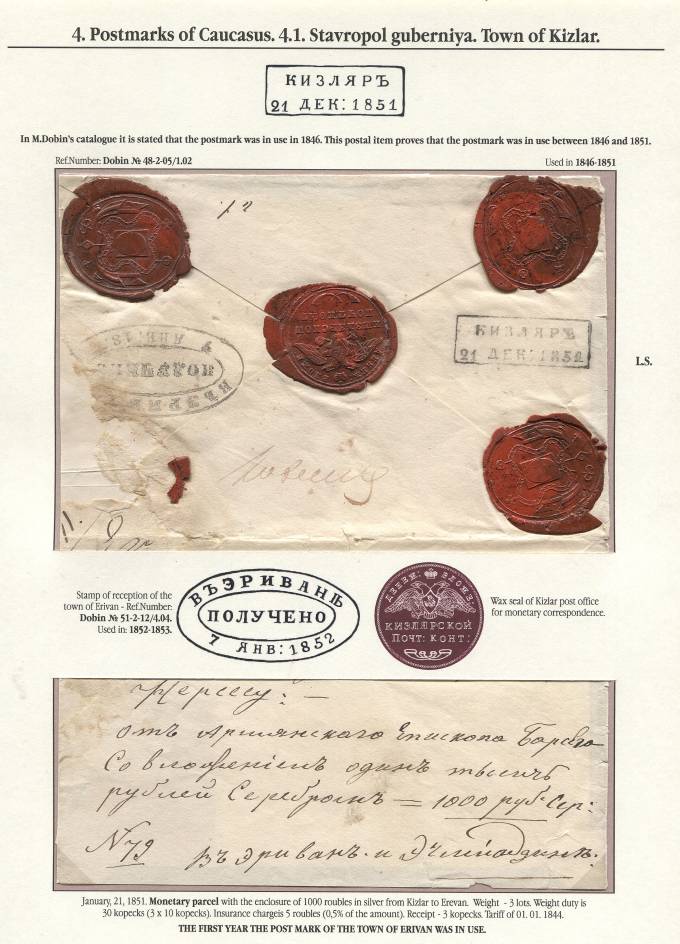 4. Postmarks of Caucasus. 4.1. Stavropol guberniya. Town of Kizlar.
КИЗЛЯРЪ
21 ДЕК: 1851
In M.Dobin's catalogue it is stated that the postmark was in use in 1846. This postal item proves that the postmark was in use between 1846 and 1851.
Ref.Number: Dobin № 48-2-05/1.02
Used in 1846-1851
КИЗЛЯРЪ
21 ДЕК: 1851
L.S.
Stamp of reception of the
town of Erivan - Ref.Number:
Dobin № 51-2-12/4.04.
Used in: 1852-1853.
ВЪ ЭРИВАНѢ
ПОЛУЧЕНО
7 ЯНВ: 1852
КИЗЛЯРСКОЙ
ПОЧТ: КОНТ:
Wax seal of Kizlar post office
for monetary correspondence.
Нерсесу: —
отъ Армянскаго Епископа
Со вложеніемъ одинъ тысячъ
рублей Серебромъ = 1000 руб. Сер:
№ 79 въ Эривань и Эчміадзинъ.
January, 21, 1851. Monetary parcel with the enclosure of 1000 roubles in silver from Kizlar to Erevan. Weight - 3 lots. Weight duty is
30 kopecks (3 x 10 kopecks). Insurance chargeis 5 roubles (0,5% of the amount). Receipt - 3 kopecks. Tariff of 01. 01. 1844.
THE FIRST YEAR THE POST MARK OF THE TOWN OF ERIVAN WAS IN USE.